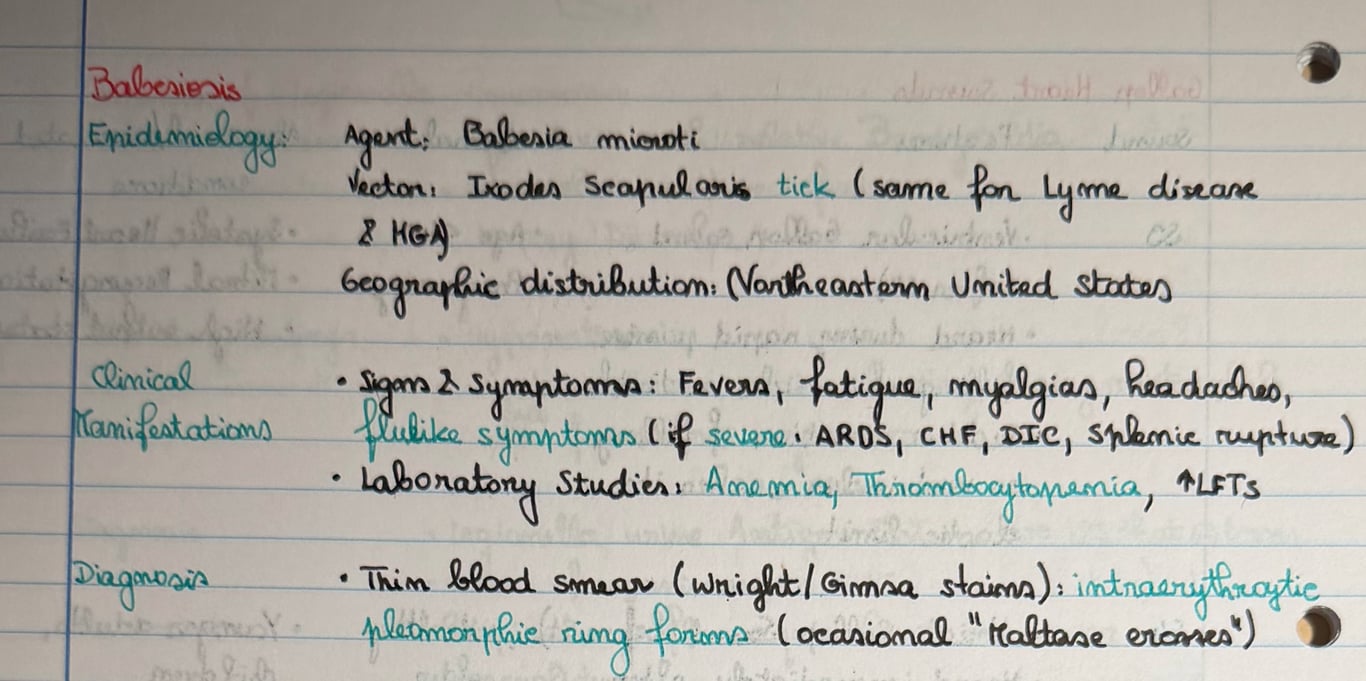 Babesiosis
Epidemiology: Agent: Babesia microti
Vector: Ixodes Scapularis tick (same for Lyme disease
& HGA)
Geographic distribution: (Northeastern United States
Clinical • Signs & Symptoms: Fevers, fatigue, myalgias, headaches,
Manifestations flulike symptoms (if severe: ARDS, CHF, DIC, Splenic rupture)
• Laboratory Studies: Anemia, Thrombocytopenia, ↑LFTs
Diagnosis • Thin blood smear (Wright/Gimsa stains): intraerythrocytic
pleomorphic ring forms (ocasional "Maltase crosses")